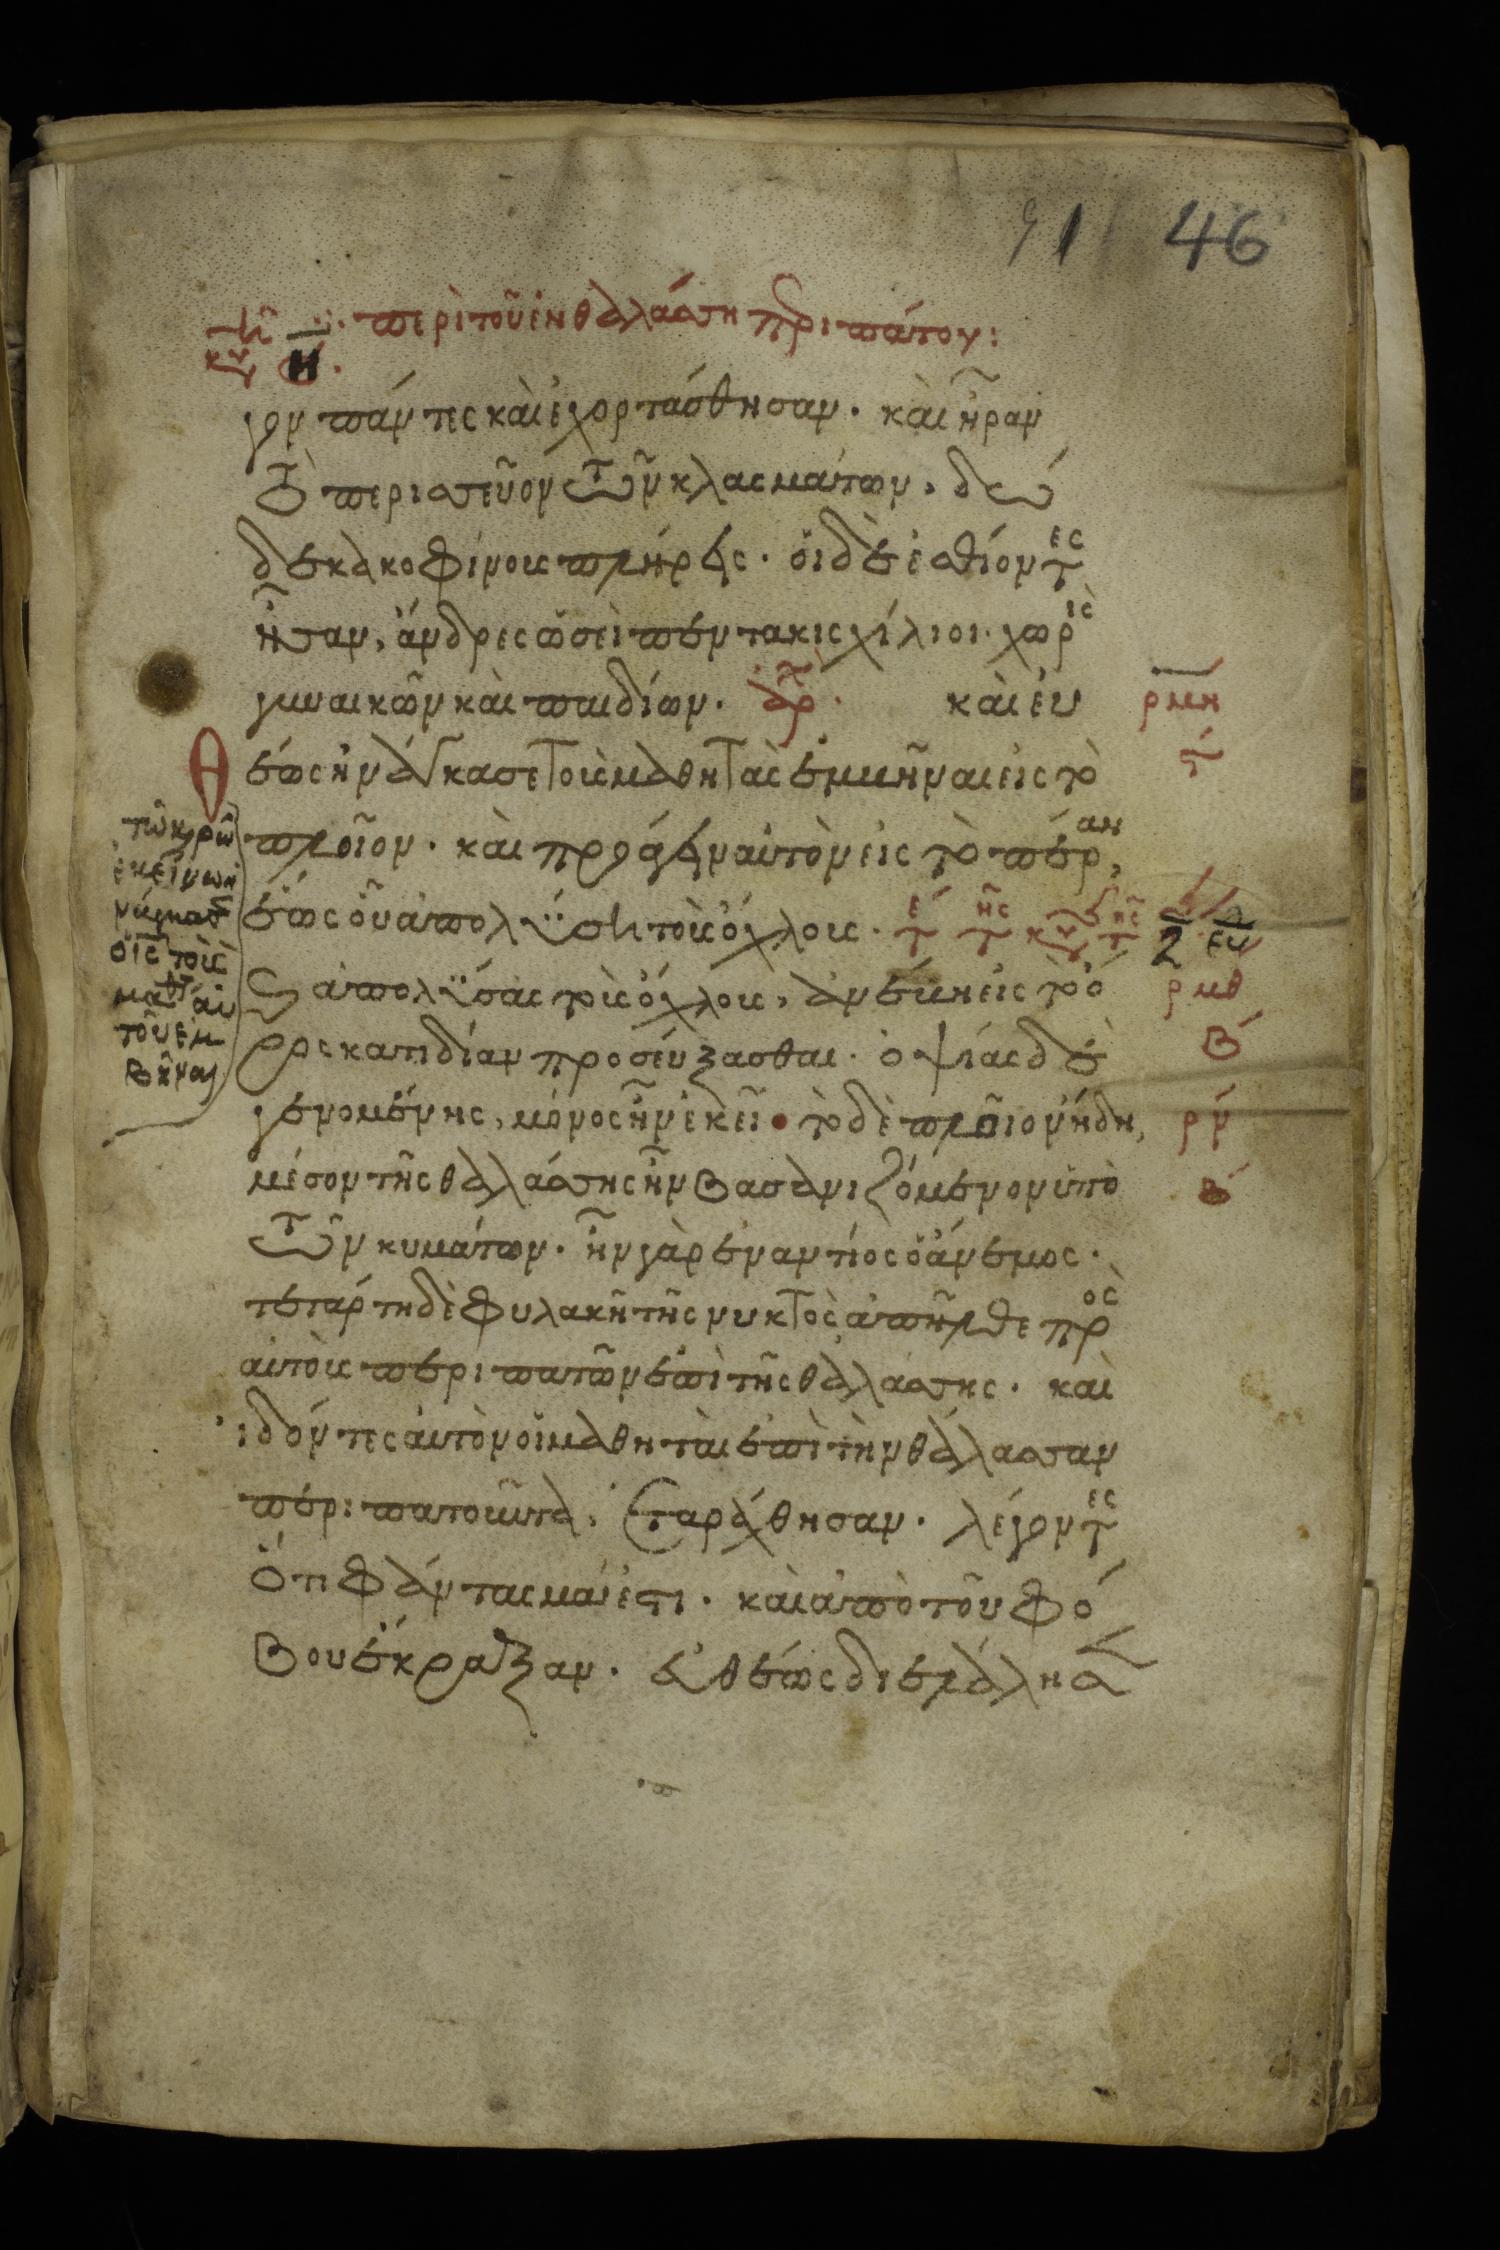 91 46
περὶ τοῦ ἐν θαλάσση περιπάτου:
κυ η
γον πάντες καὶ ἐχορτάσθησαν. καὶ ἦραν
τὸ περισσεῦον τῶν κλασμάτων, δώ
δεκα κοφίνους πλήρεις. οἱ δὲ ἐσθίοντες
ἦσαν, ἄνδρες ὡσεὶ πεντακισχίλιοι. χωρὶς
γυναικῶν καὶ παιδίων. ἀρχ. καὶ εὐ ρμη
θέως ἠνάγκασε τοὺς μαθητὰς ἐμβῆναι εἰς τὸ ϛ
πλοῖον. καὶ προάγειν αὐτὸν εἰς τὸ πέραν,
ἕως οὗ ἀπολύσῃ τοὺς ὄχλους. τε τῆς κυ
καὶ ἀπολύσας τοὺς ὄχλους, ἀνέβη εἰς τὸ ὄ ρμθ
ρος κατιδίαν προσεύξασθαι. ὀψίας δὲ β
γενομένης, μόνος ἦν ἐκεῖ. τὸ δὲ πλοῖον ἤδη, ρν
μέσον τῆς θαλάσσης ἦν βασανιζόμενον ὑπὸ β
τῶν κυμάτων. ἦν γὰρ ἐναντίος ὁ ἄνεμος.
τετάρτη δὲ φυλακῆ τῆς νυκτὸς ἀπῆλθε πρὸς
αὐτοὺς περιπατῶν ἐπὶ τῆς θαλάσσης. καὶ
ἰδόντες αὐτὸν οἱ μαθηταὶ ἐπὶ τὴν θάλασσαν
περιπατοῦντα, ἐταράχθησαν. λέγοντες
ὅτι φάντασμά ἐστι. καὶ ἀπὸ τοῦ φό
βου ἔκραξαν. εὐθέως δὲ ἐλάλησ
τῶ κρῶ
ἐκείνω ἠ
νάγκασ
ὁ ις τοὺς
μαθτ αὐ
τοῦ ἐμ
βῆναι